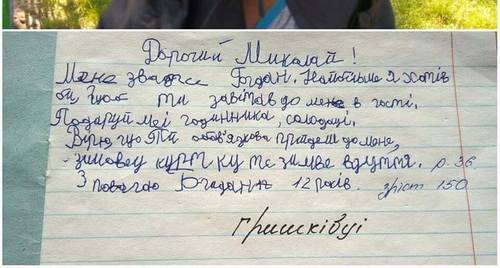 Дорогий Миколай!
Мене звати Богдан. Найбільше я хотів
би, щоб ти завітав до мене в гості.
Подаруй мені годинника, солодощі.
Вірю, що Ти обов'язкова прийдеш до мене,
зимову куртку та зимве взуття. р. 36
З повагою Богдан 12 років. зріст 150
Гришківці